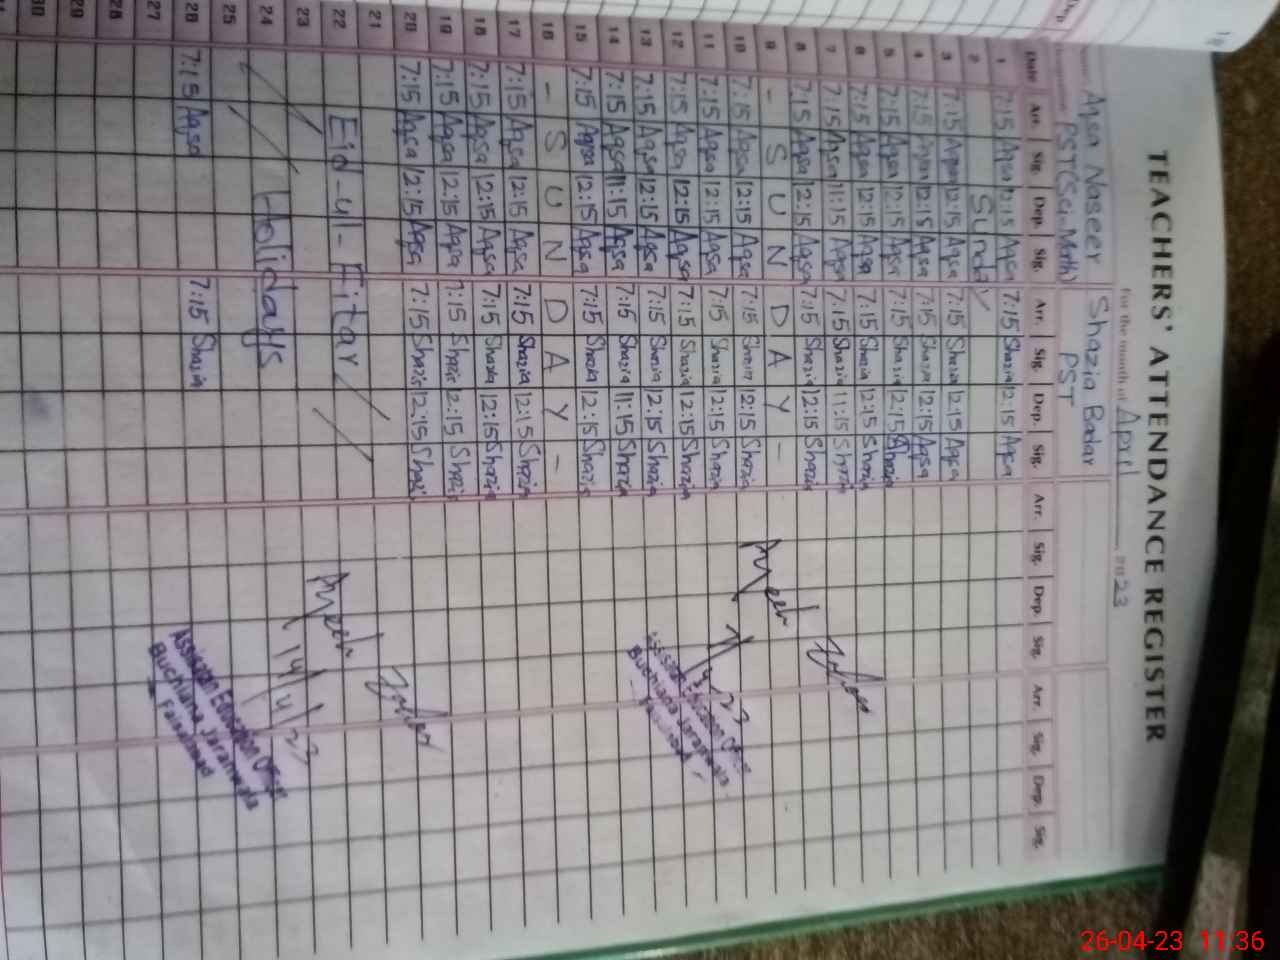 TEACHERS' ATTENDANCE REGISTER
For the month of April 2023
Name Aqsa Naseer Shazia Badar
PST(Sci.Math) PST
Date Arr. Sig. Dep. Sig. Arr. Sig. Dep. Sig. Arr. Sig. Dep. Sig. Arr. Sig. Dep. Sig.
1 7:15 Aqsa 12:15 Aqsa 7:15 Shazia 12:15 Aqsa
2 Sunday
3 7:15 Aqsa 12:15 Aqsa 7:15 Shazia 12:15 Aqsa
4 7:15 Aqsa 12:15 Aqsa 7:15 Shazia 12:15 Aqsa
5 7:15 Aqsa 12:15 Aqsa 7:15 Shazia 12:15 Shazia
6 7:15 Aqsa 12:15 Aqsa 7:15 Shazia 12:15 Shazia
7 7:15 Aqsa 11:15 Aqsa 7:15 Shazia 11:15 Shazia
8 7:15 Aqsa 12:15 Aqsa 7:15 Shazia 12:15 Shazia
9 - S U N D A Y -
10 7:15 Aqsa 12:15 Aqsa 7:15 Shazia 12:15 Shazia
11 7:15 Aqsa 12:15 Aqsa 7:15 Shazia 12:15 Shazia
12 7:15 Aqsa 12:15 Aqsa 7:15 Shazia 12:15 Shazia
13 7:15 Aqsa 12:15 Aqsa 7:15 Shazia 12:15 Shazia
14 7:15 Aqsa 11:15 Aqsa 7:15 Shazia 11:15 Shazia
15 7:15 Aqsa 12:15 Aqsa 7:15 Shazia 12:15 Shazia
16 - S U N D A Y -
17 7:15 Aqsa 12:15 Aqsa 7:15 Shazia 12:15 Shazia
18 7:15 Aqsa 12:15 Aqsa 7:15 Shazia 12:15 Shazia
19 7:15 Aqsa 12:15 Aqsa 7:15 Shazia 12:15 Shazia
20 7:15 Aqsa 12:15 Aqsa 7:15 Shazia 12:15 Shazi
21
22 Eid-ul-Fitar
23
24 Holidays
25
26 7:15 Aqsa 7:15 Shazia
27
28
29
30
Buchiana Jaranwala
14/4/23
Buchiana Jaranwala
Faisalabad
26-04-23 11:36